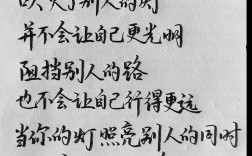 吹灭别人的灯
并不会让自己更光明
阻挡别人的路
也不会让自己行得更远
当你的灯照亮别人的同时